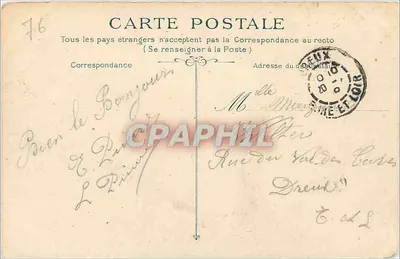 76
CARTE POSTALE
Tous les pays étrangers n'acceptent pas la Correspondance au recto
(Se renseigner à la Poste)
Correspondance
Adresse du
DREUX
EURE ET LOIR
Bien le Bonjour
E
L
Mlle
Rue du Val des
Dreux
E. et L
CPAPHIL